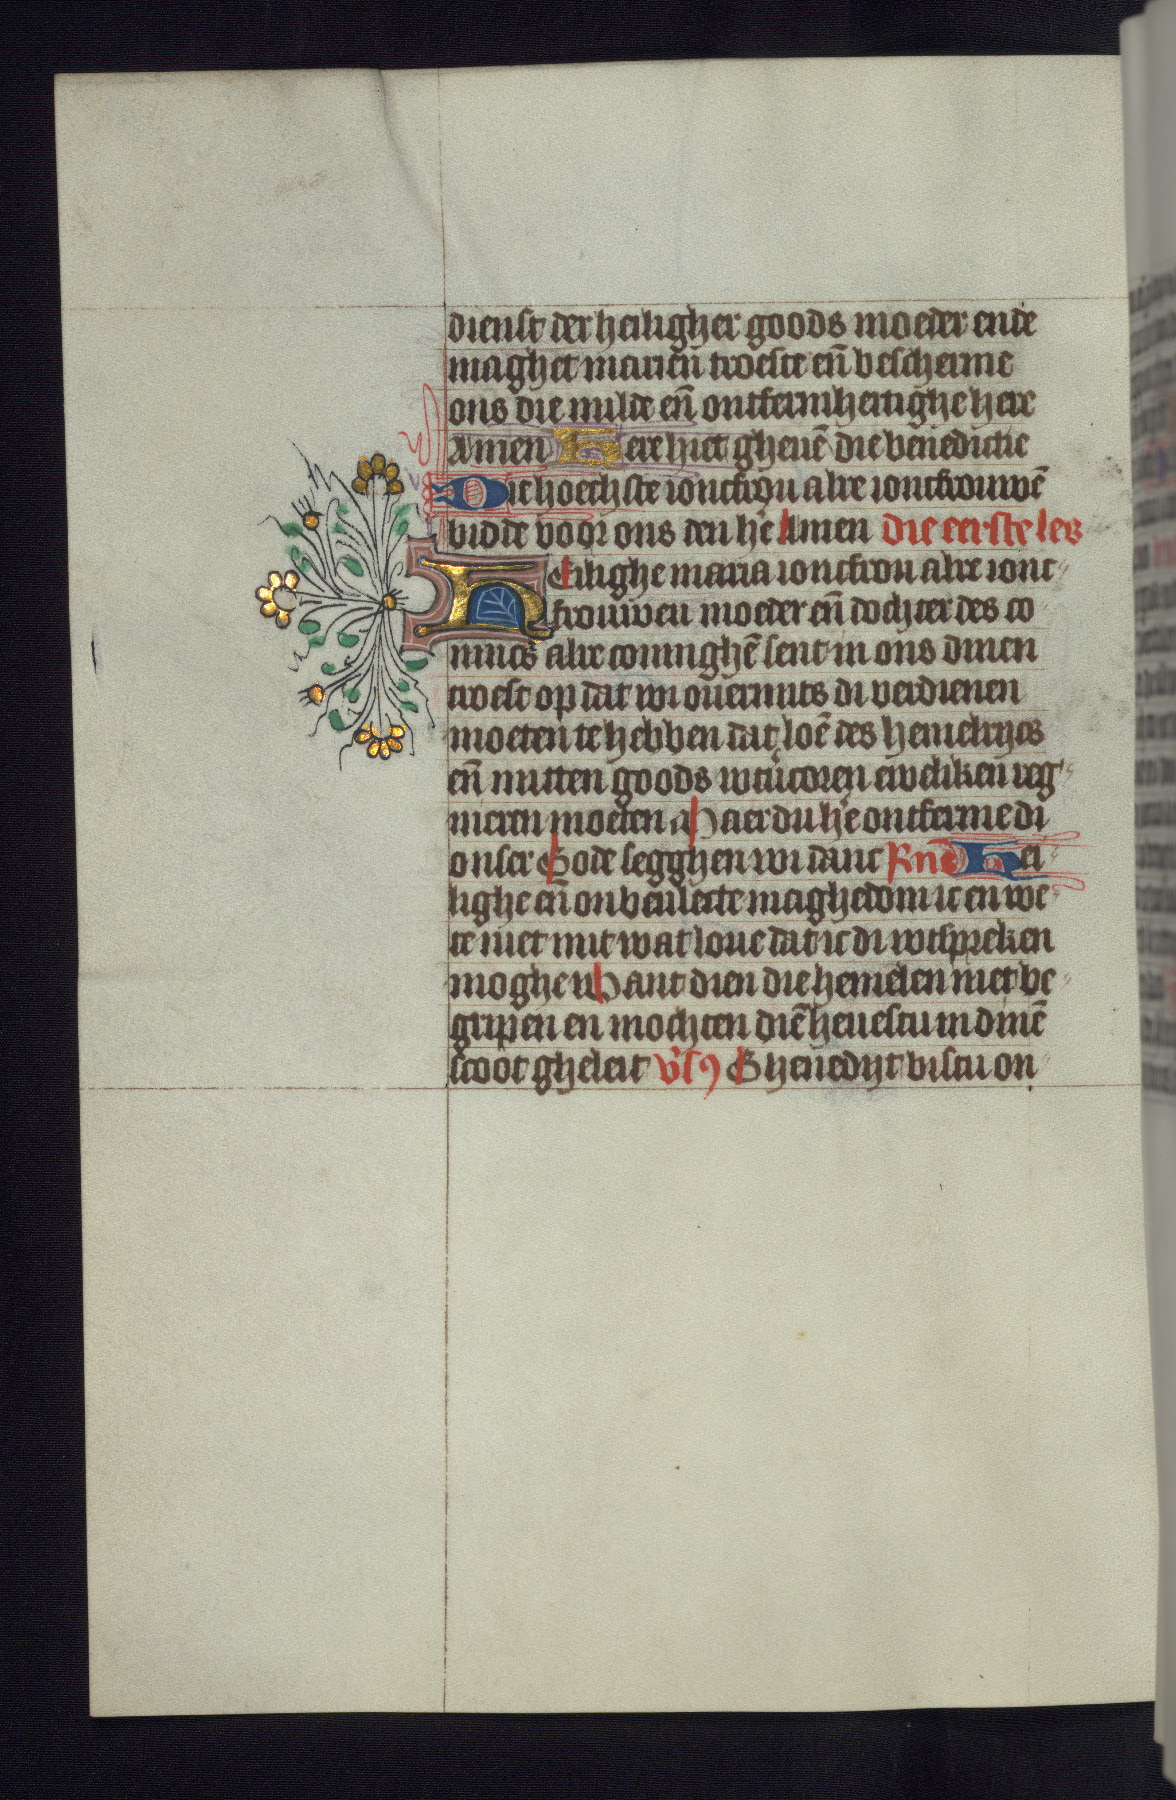 dienst der heiligher goods moeder ende
maghet marien troeste eñ bescherme
ons die milde eñ ontfermhertighe here
Amen Here hiet gheuē die benedictie
Die hoechste ioncfrou alre ioncfrouwē
bidde voor ons den hē Amen die eerste les
Heilighe maria ioncfrou alre ionc⸗
frouwen moeder eñ dochter des co
nincs alre coninghē sent in ons dinen
troest op dat wi ouermits di verdienen
moeten te hebben dat loē des hemelrijcs
eñ mitten goods wtuercoren ewelikē reg⸗
nieren moeten Maer du hē ontferme di
onser Gode segghen wi danc Rñe Hei⸗
lighe eñ onbeulecte maghedom ic en we⸗
te niet mit wat loue dat ic di wtspreken
moghe Want dien die hemelen niet be⸗
gripen en mochten diē heuestu in dinē
scoot gheleit v̄sꝯ Ghenedijt bistu on⸗